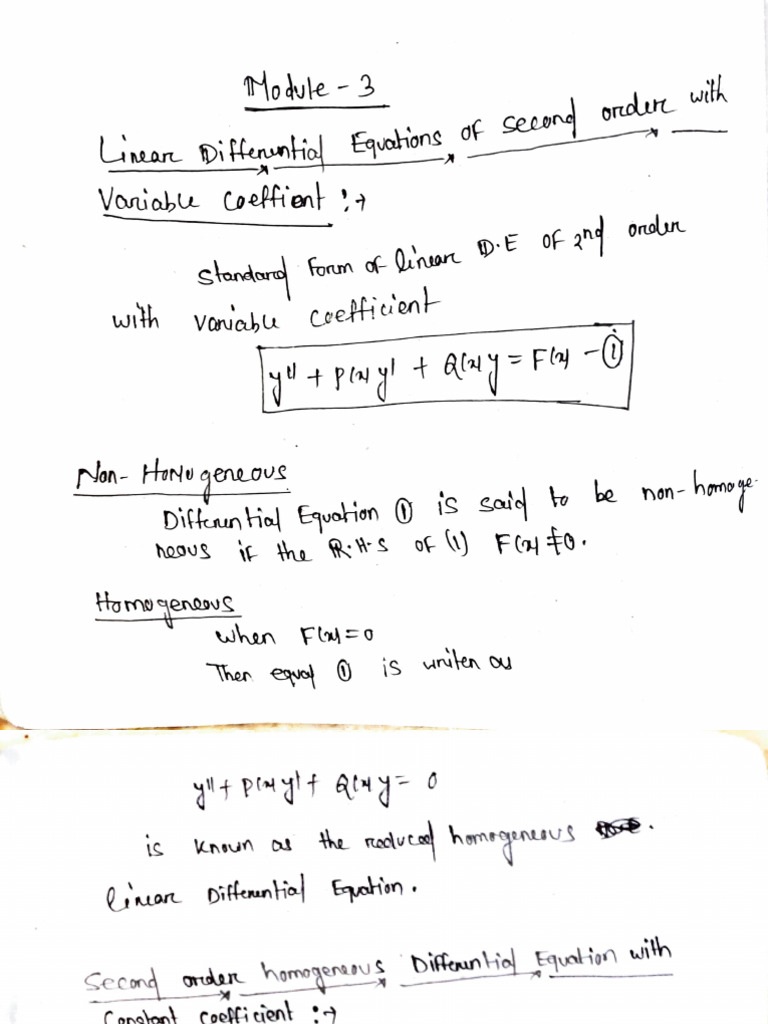 Module - 3
Linear Differential Equations of second order with
Variable coeffient :→
standard form of linear D.E of 2nd order
with variable coefficient
y'' + P(x) y' + Q(x) y = F(x) - ①
Non-Homogeneous
Differential Equation ① is said to be non-homoge-
neous if the R.H.S of (1) F(x) ≠ 0.
Homogeneous
when F(x) = 0
Then equal ① is written as
y'' + P(x) y' + Q(x) y = 0
is known as the reduced homogeneous .
linear Differential Equation.
Second order homogeneous Differential Equation with
Constant coefficient :→